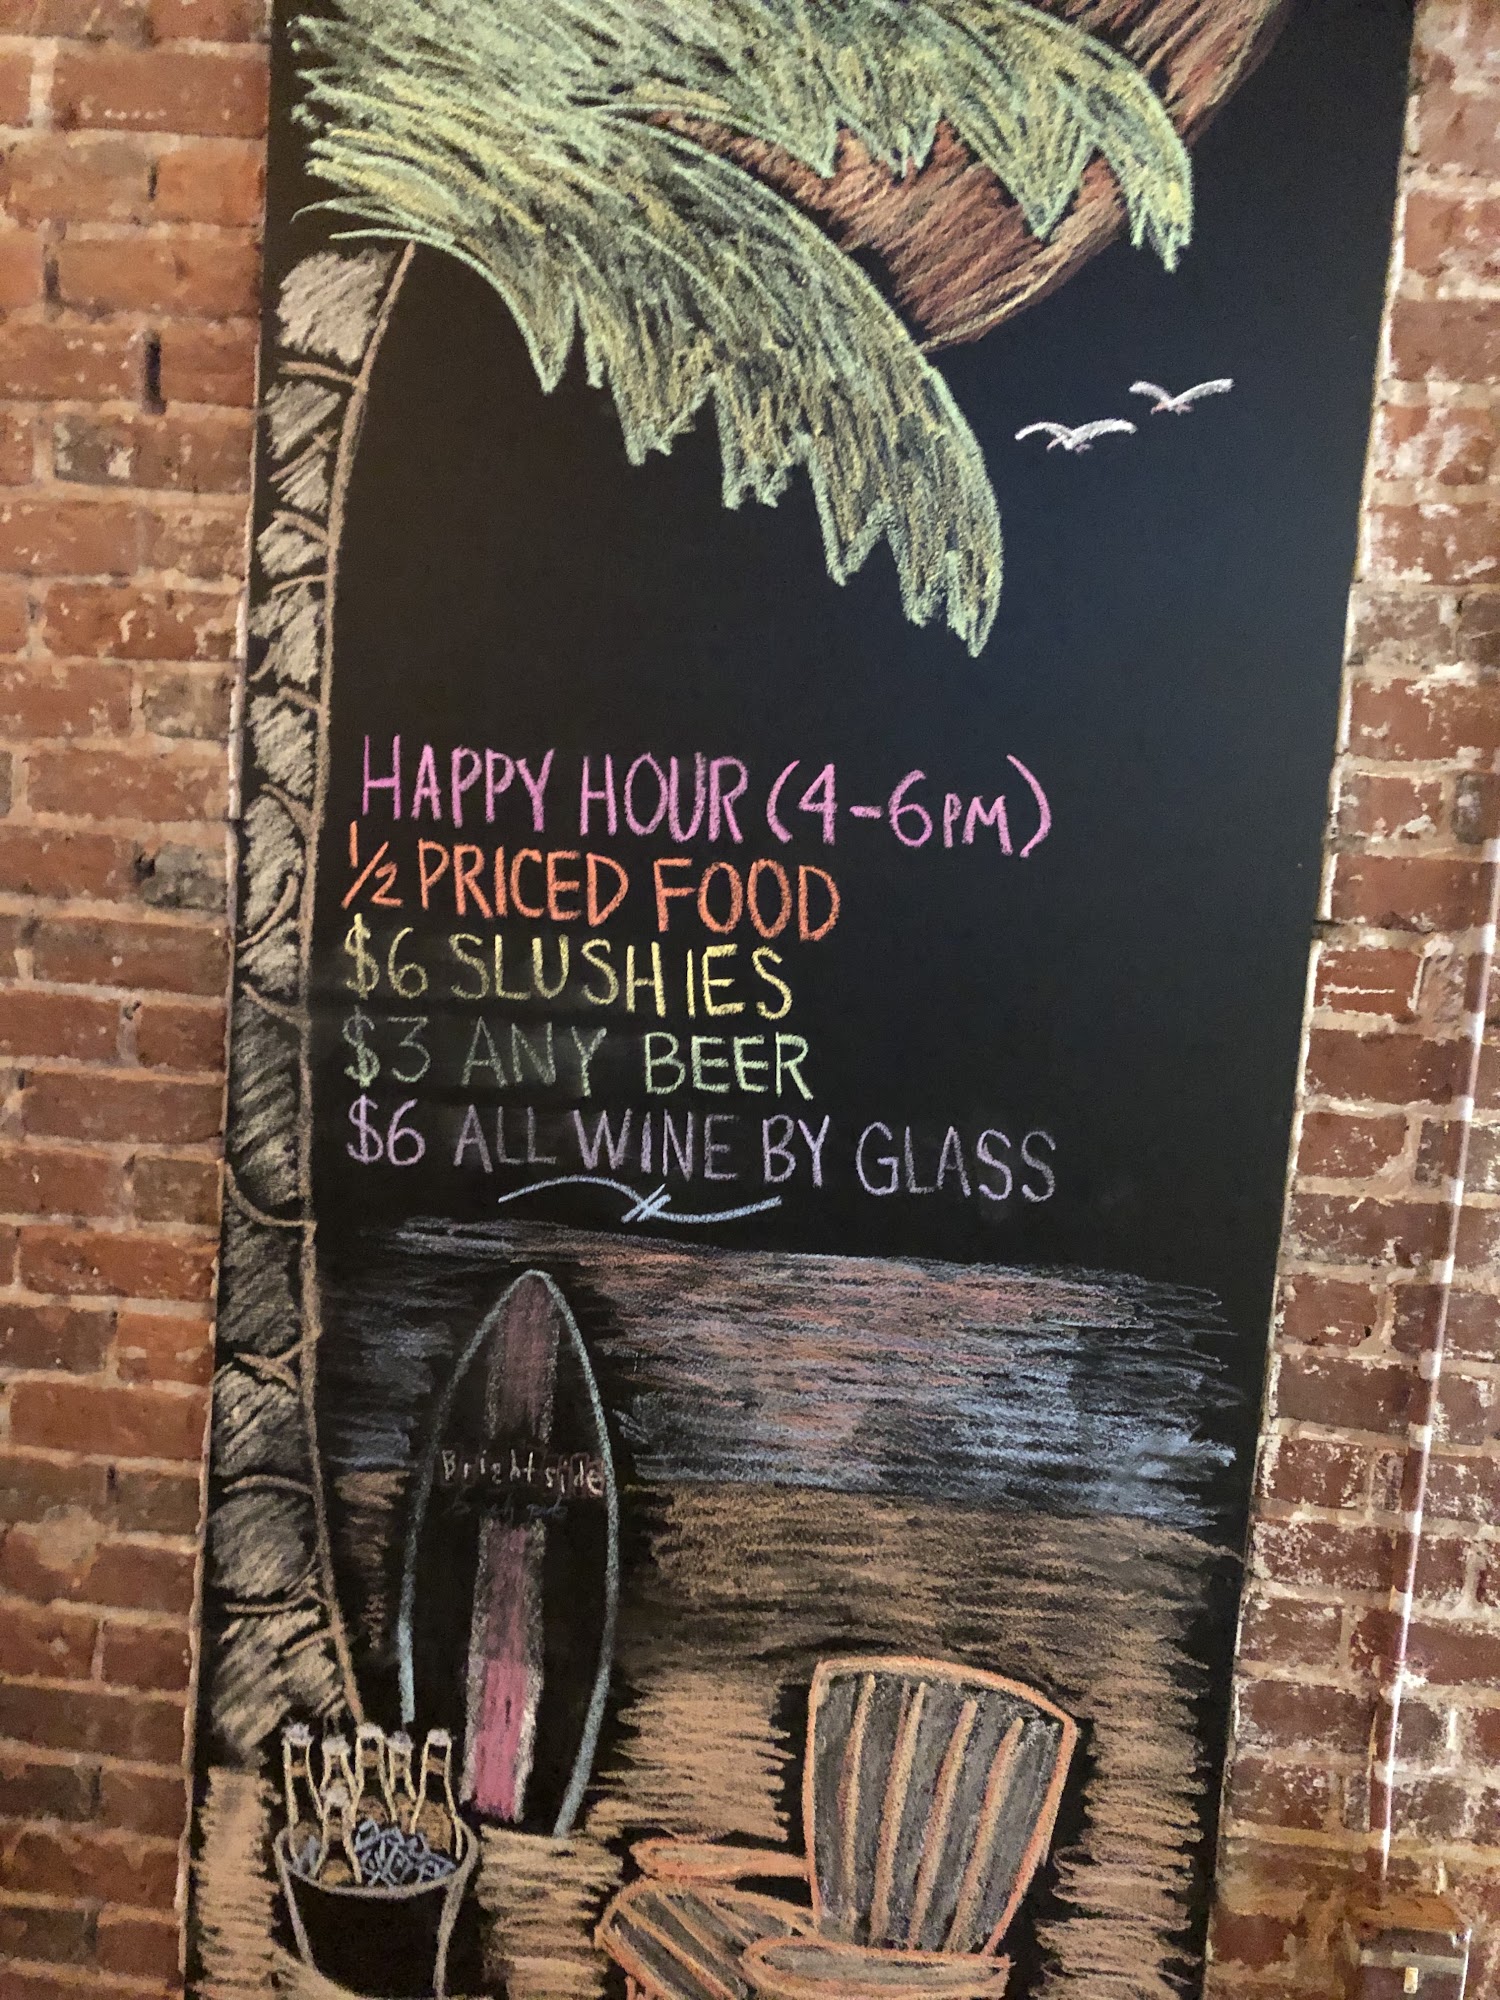 HAPPY HOUR (4-6PM)
1/2 PRICED FOOD
$6 SLUSHIES
$3 ANY BEER
$6 ALL WINE BY GLASS
Brightside